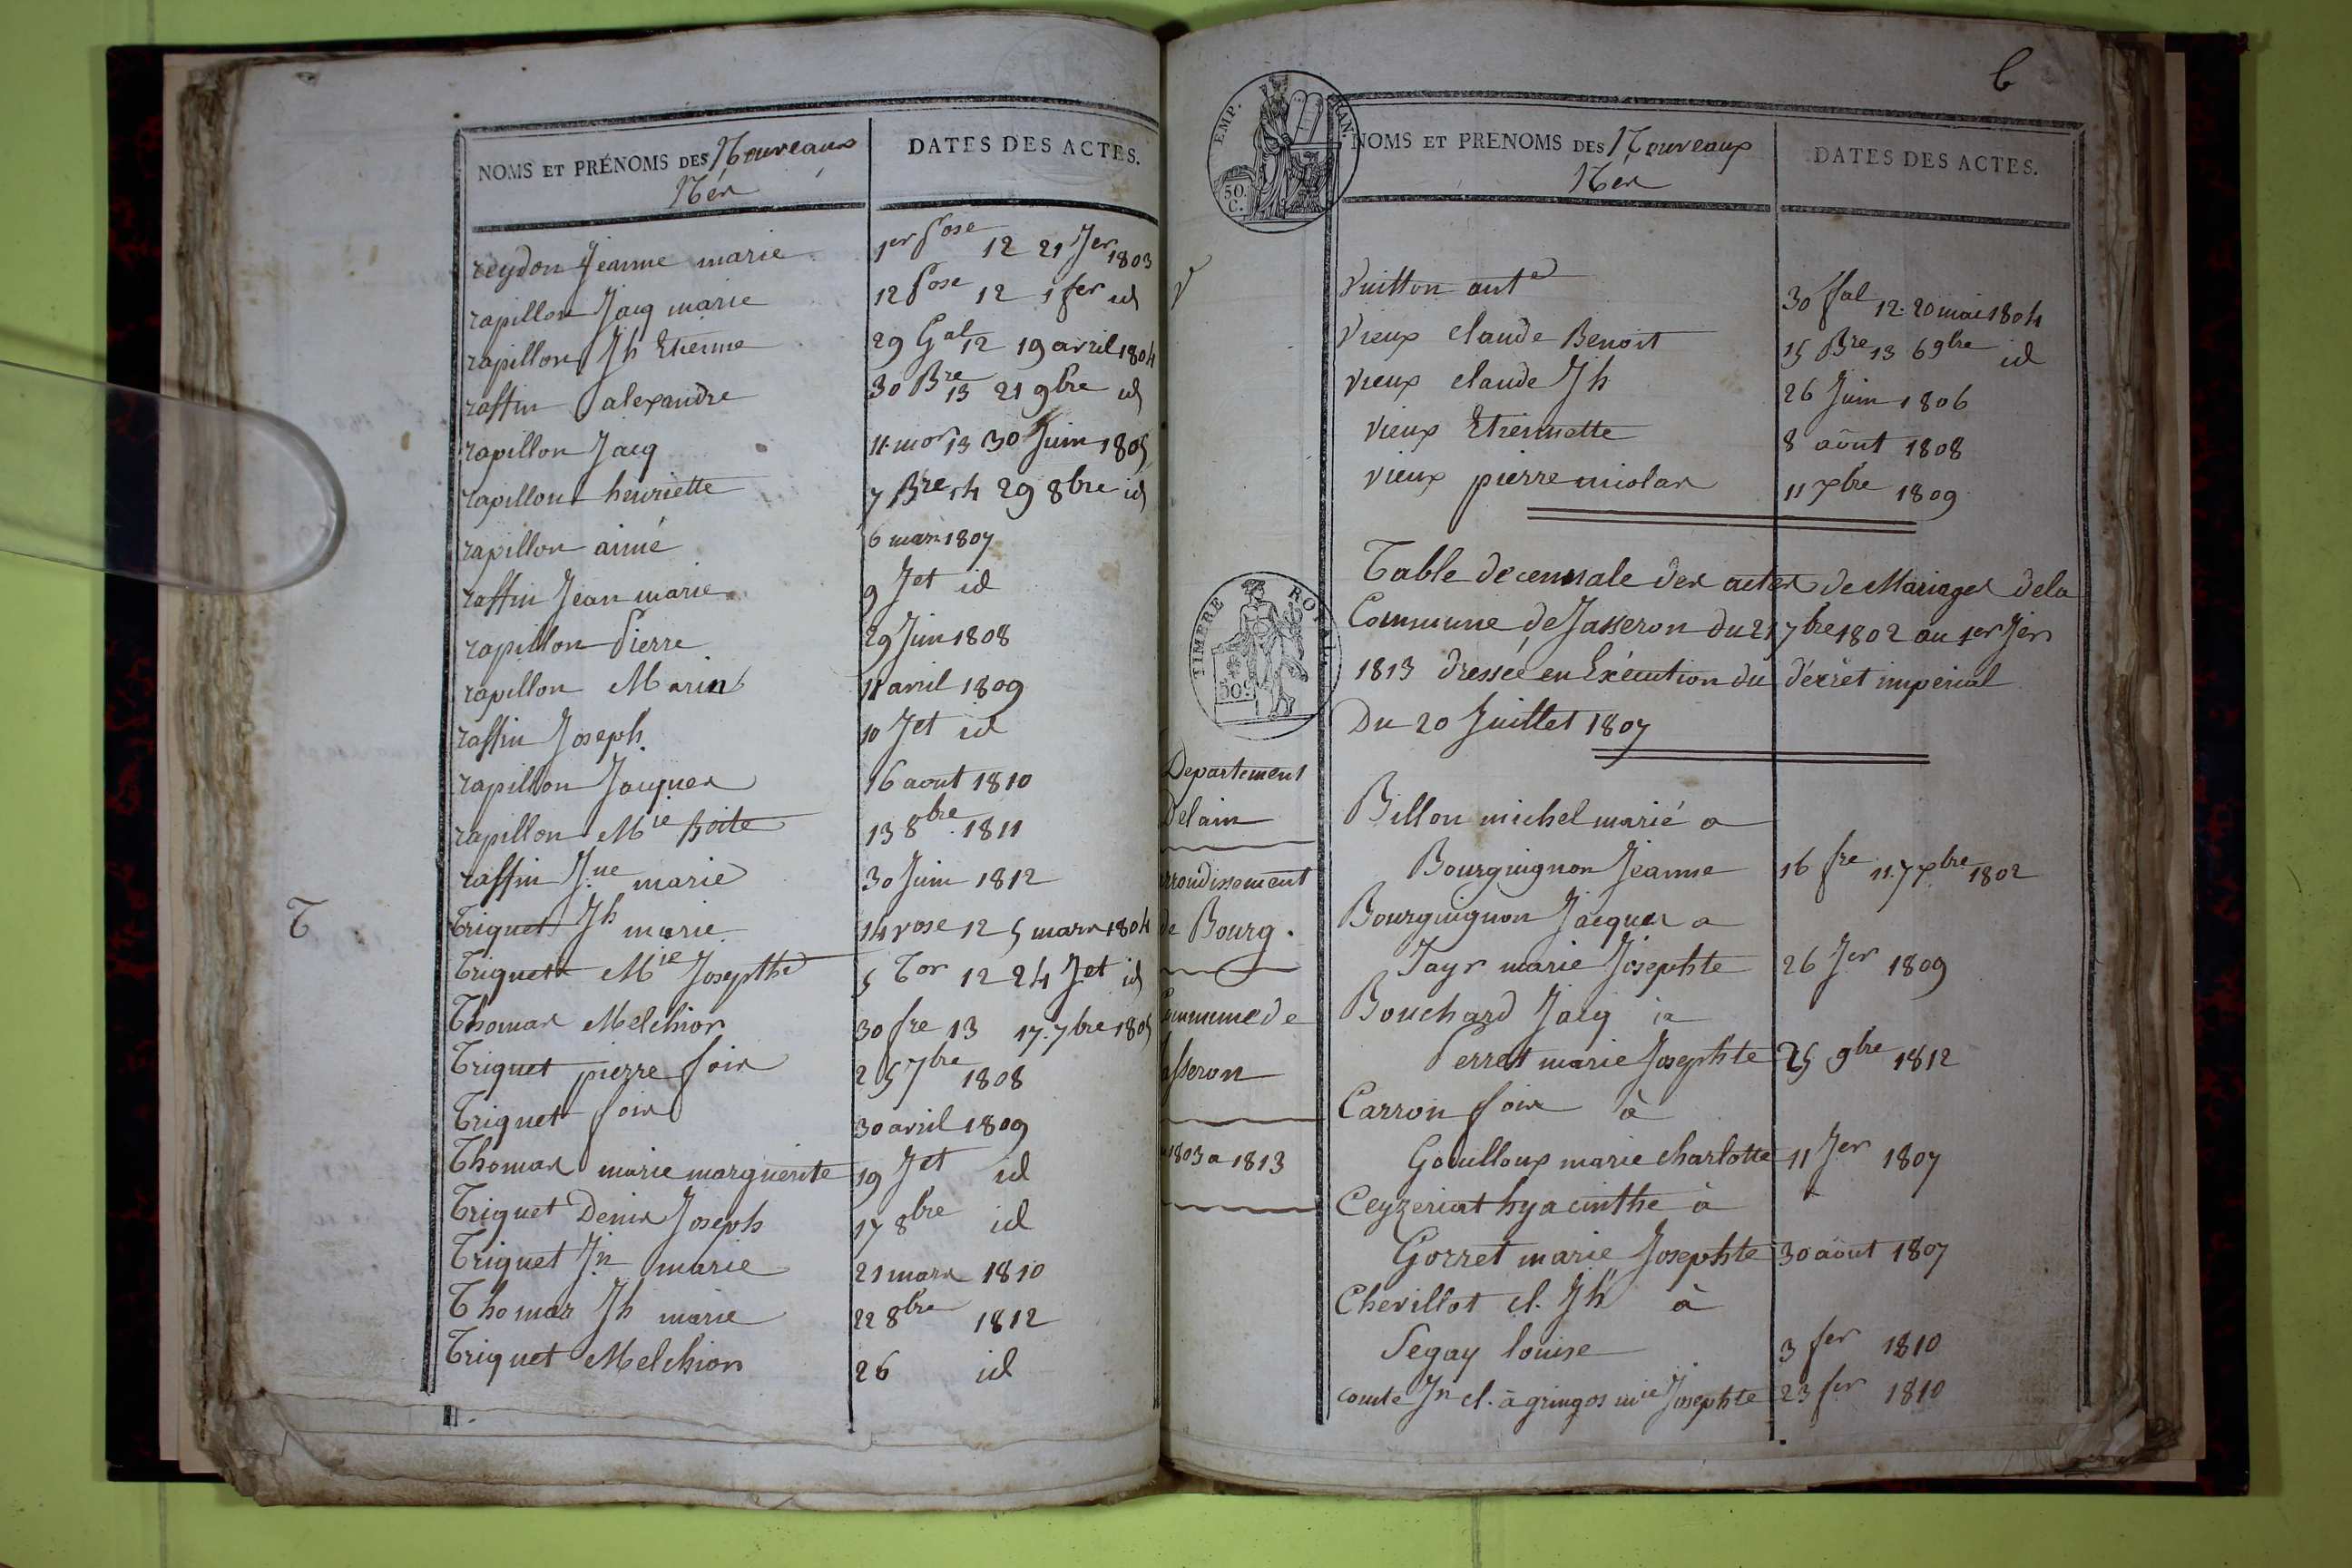 NOMS ET PRÉNOMS DES Nouveaux
Nés
DATES DES ACTES.
reydon Jeanne marie 1er Pose 12 21 Jer 1803
rapillon Jacq marie 12 Pose 12 1 fer id
rapillon Jh Etienne 29 Gal 12 19 avril 1804
raffin alexandre 30 Bre 13 21 9bre id
rapillon Jacq 11 mor 13 30 Juin 1805
rapillon henriette 7 Bre 14 29 8bre id
rapillon aimé 6 mars 1807
raffin Jean marie 9 Jet id
rapillon Pierre 29 Juin 1808
rapillon Marin 11 avril 1809
raffin Joseph 10 Jet id
rapillon Jacques 16 aout 1810
rapillon Mie 13 8bre 1811
raffin Jne marie 30 Juin 1812
T
Triquet Jh marie 14 vose 12 5 mars 1804
Triquet Mie Josepthe 5 Tor 12 24 Jet id
Thomas Melchior 30 fre 13 17 7bre 1805
Triquet pierre fois 25 7bre 1808
Triquet fois 30 avril 1809
Thomas marie marguerite 19 Jet id
Triquet Denis Joseph 17 8bre id
Triquet Jn marie 21 mars 1810
Thomas Jh marie 22 8bre 1812
Triquet Melchior 26 id
6
EMP.
50.
C.
NOMS ET PRÉNOMS DES Nouveaux
Nés
DATES DES ACTES.
V
Vuitton ante 30 fal 12. 20 mai 1804
Vieux claude Benoit 15 Bre 13 6 9bre id
vieux claude Jh 26 Juin 1806
vieux Etiennette 8 août 1808
vieux pierre nicolas 11 xbre 1809
Table decennale des actes de Mariages dela
Commune de Jasseron du 21 7bre 1802 au 1er Jer
1813 dressée en Exécution du décret impérial
Du 20 Juillet 1807
TIMBRE ROYAL
50
Departement
Delain
arrondissement
de Bourg.
Commune de
Jasseron
1803 a 1813
Billon michel marié a
Bourguignon Jeanne 16 fre 11. 7 xbre 1802
Bourguignon Jacques a
Jayr marie Josephte 26 Jer 1809
Bouchard Jacq a
Perret marie Josephte 25 9bre 1812
Carron fois à
Gouilloux marie charlotte 11 Jer 1807
Ceyzeriat hyacinthe à
Gorret marie Josephte 30 août 1807
Chevillot cl. Jh à
Segay louise 3 fer 1810
comte Jn cl. à gringos mie Josephte 23 fer 1810